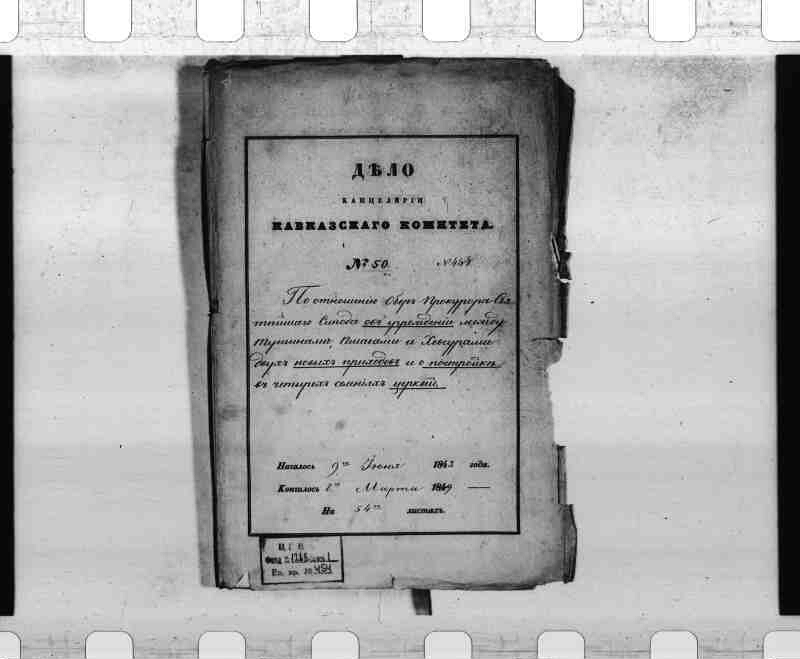 ДѢЛО
КАНЦЕЛЯРІИ
КАВКАЗСКАГО КОМИТЕТА.
№ 50. № 454
По отношенію Оберъ Прокурора Свя
тѣйшаго Синода объ учрежденіи между
Тушинами, Пшавами и Хевсурами
двухъ новыхъ приходовъ и о постройкѣ
въ четырехъ селеніяхъ церквей.
Началось 9го Іюня 1843 года.
Кончилось 8го Марта 1849
На 54хъ листахъ.
Ц. Г. И.
Фонд № 1268 опись 1
Ед. хр. № 454